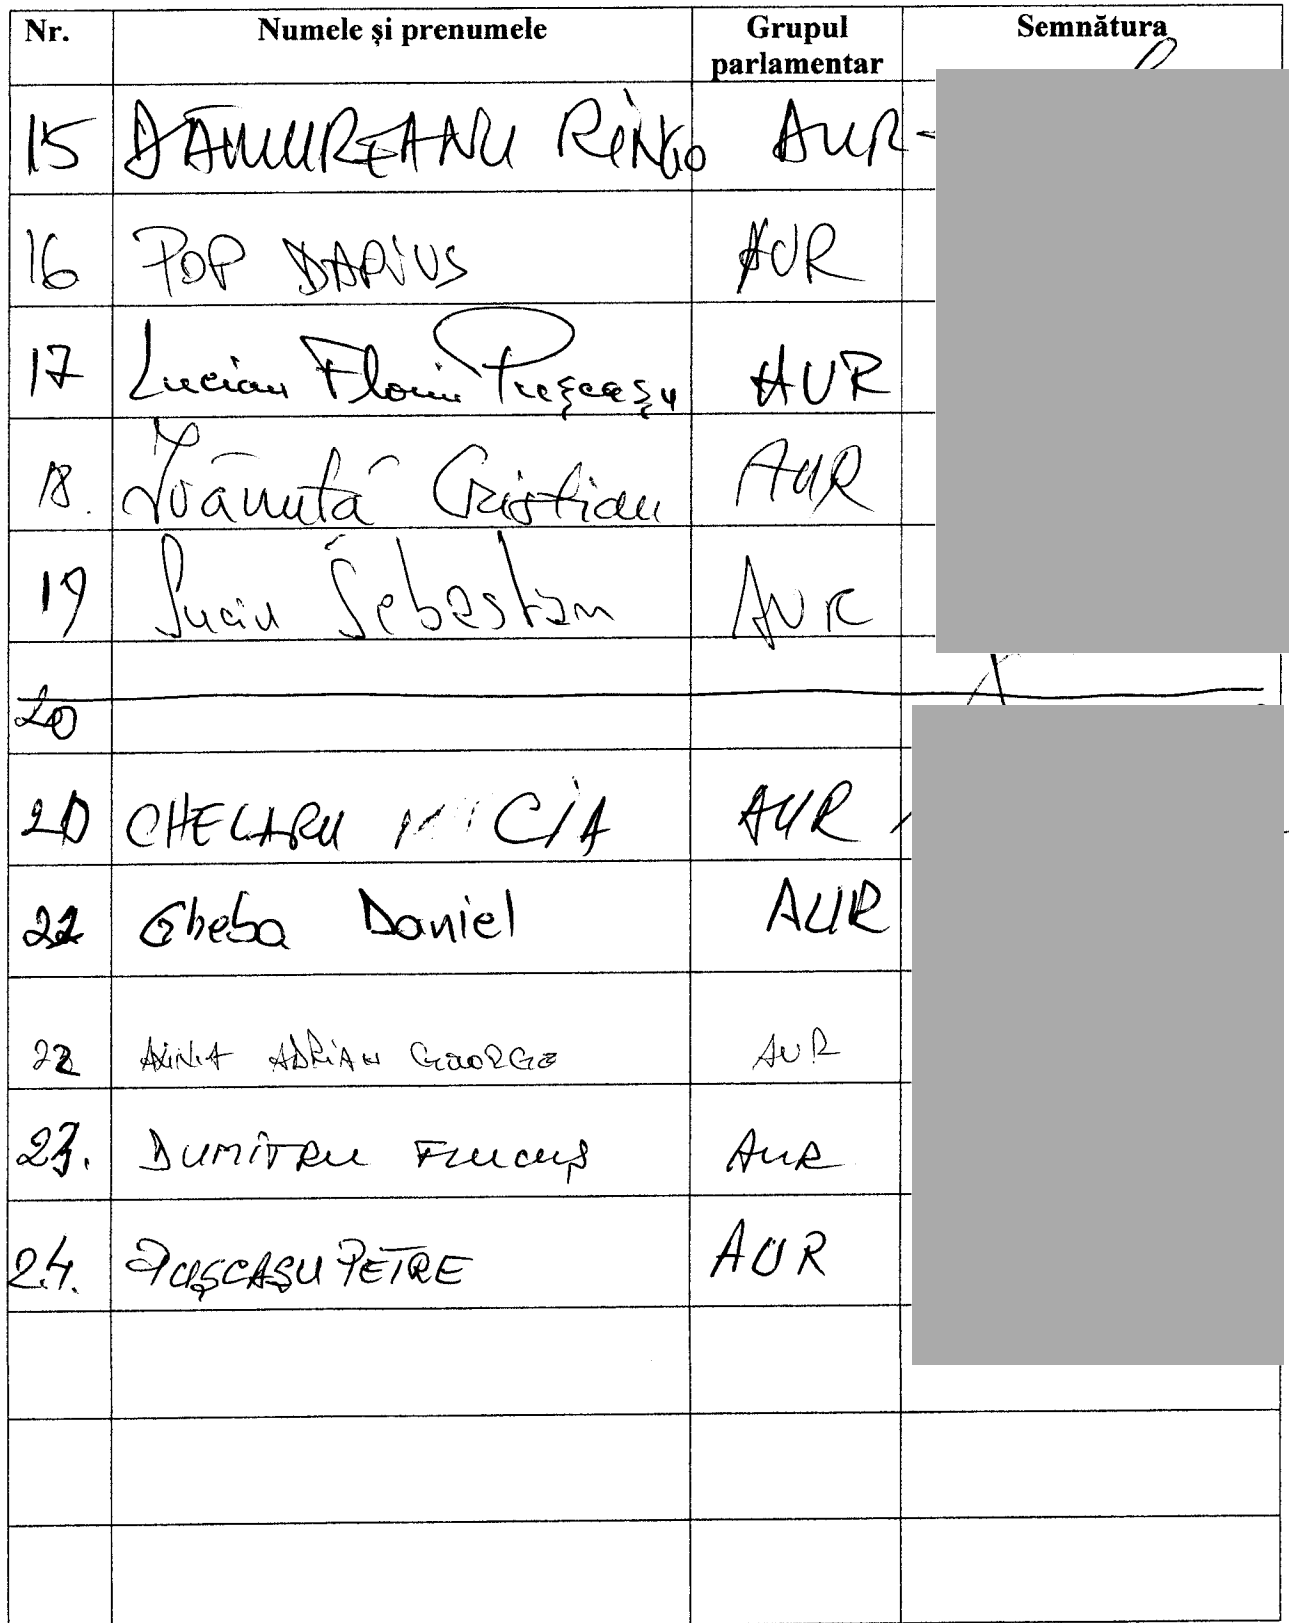 Nr. Numele și prenumele Grupul parlamentar Semnătura
15 DĂMUREANU RINGO AUR
16 POP DARIUS AUR
17 Lucian Florin Pușcașu AUR
18. Ivănuță Cristian AUR
19 Suciu Sebastian AUR
20
20 CHELARU AUR
22 Gheba Daniel AUR
22 ADRIAN GEORGE AUR
23. DUMITRU AUR
24. PUȘCAȘU PETRE AUR